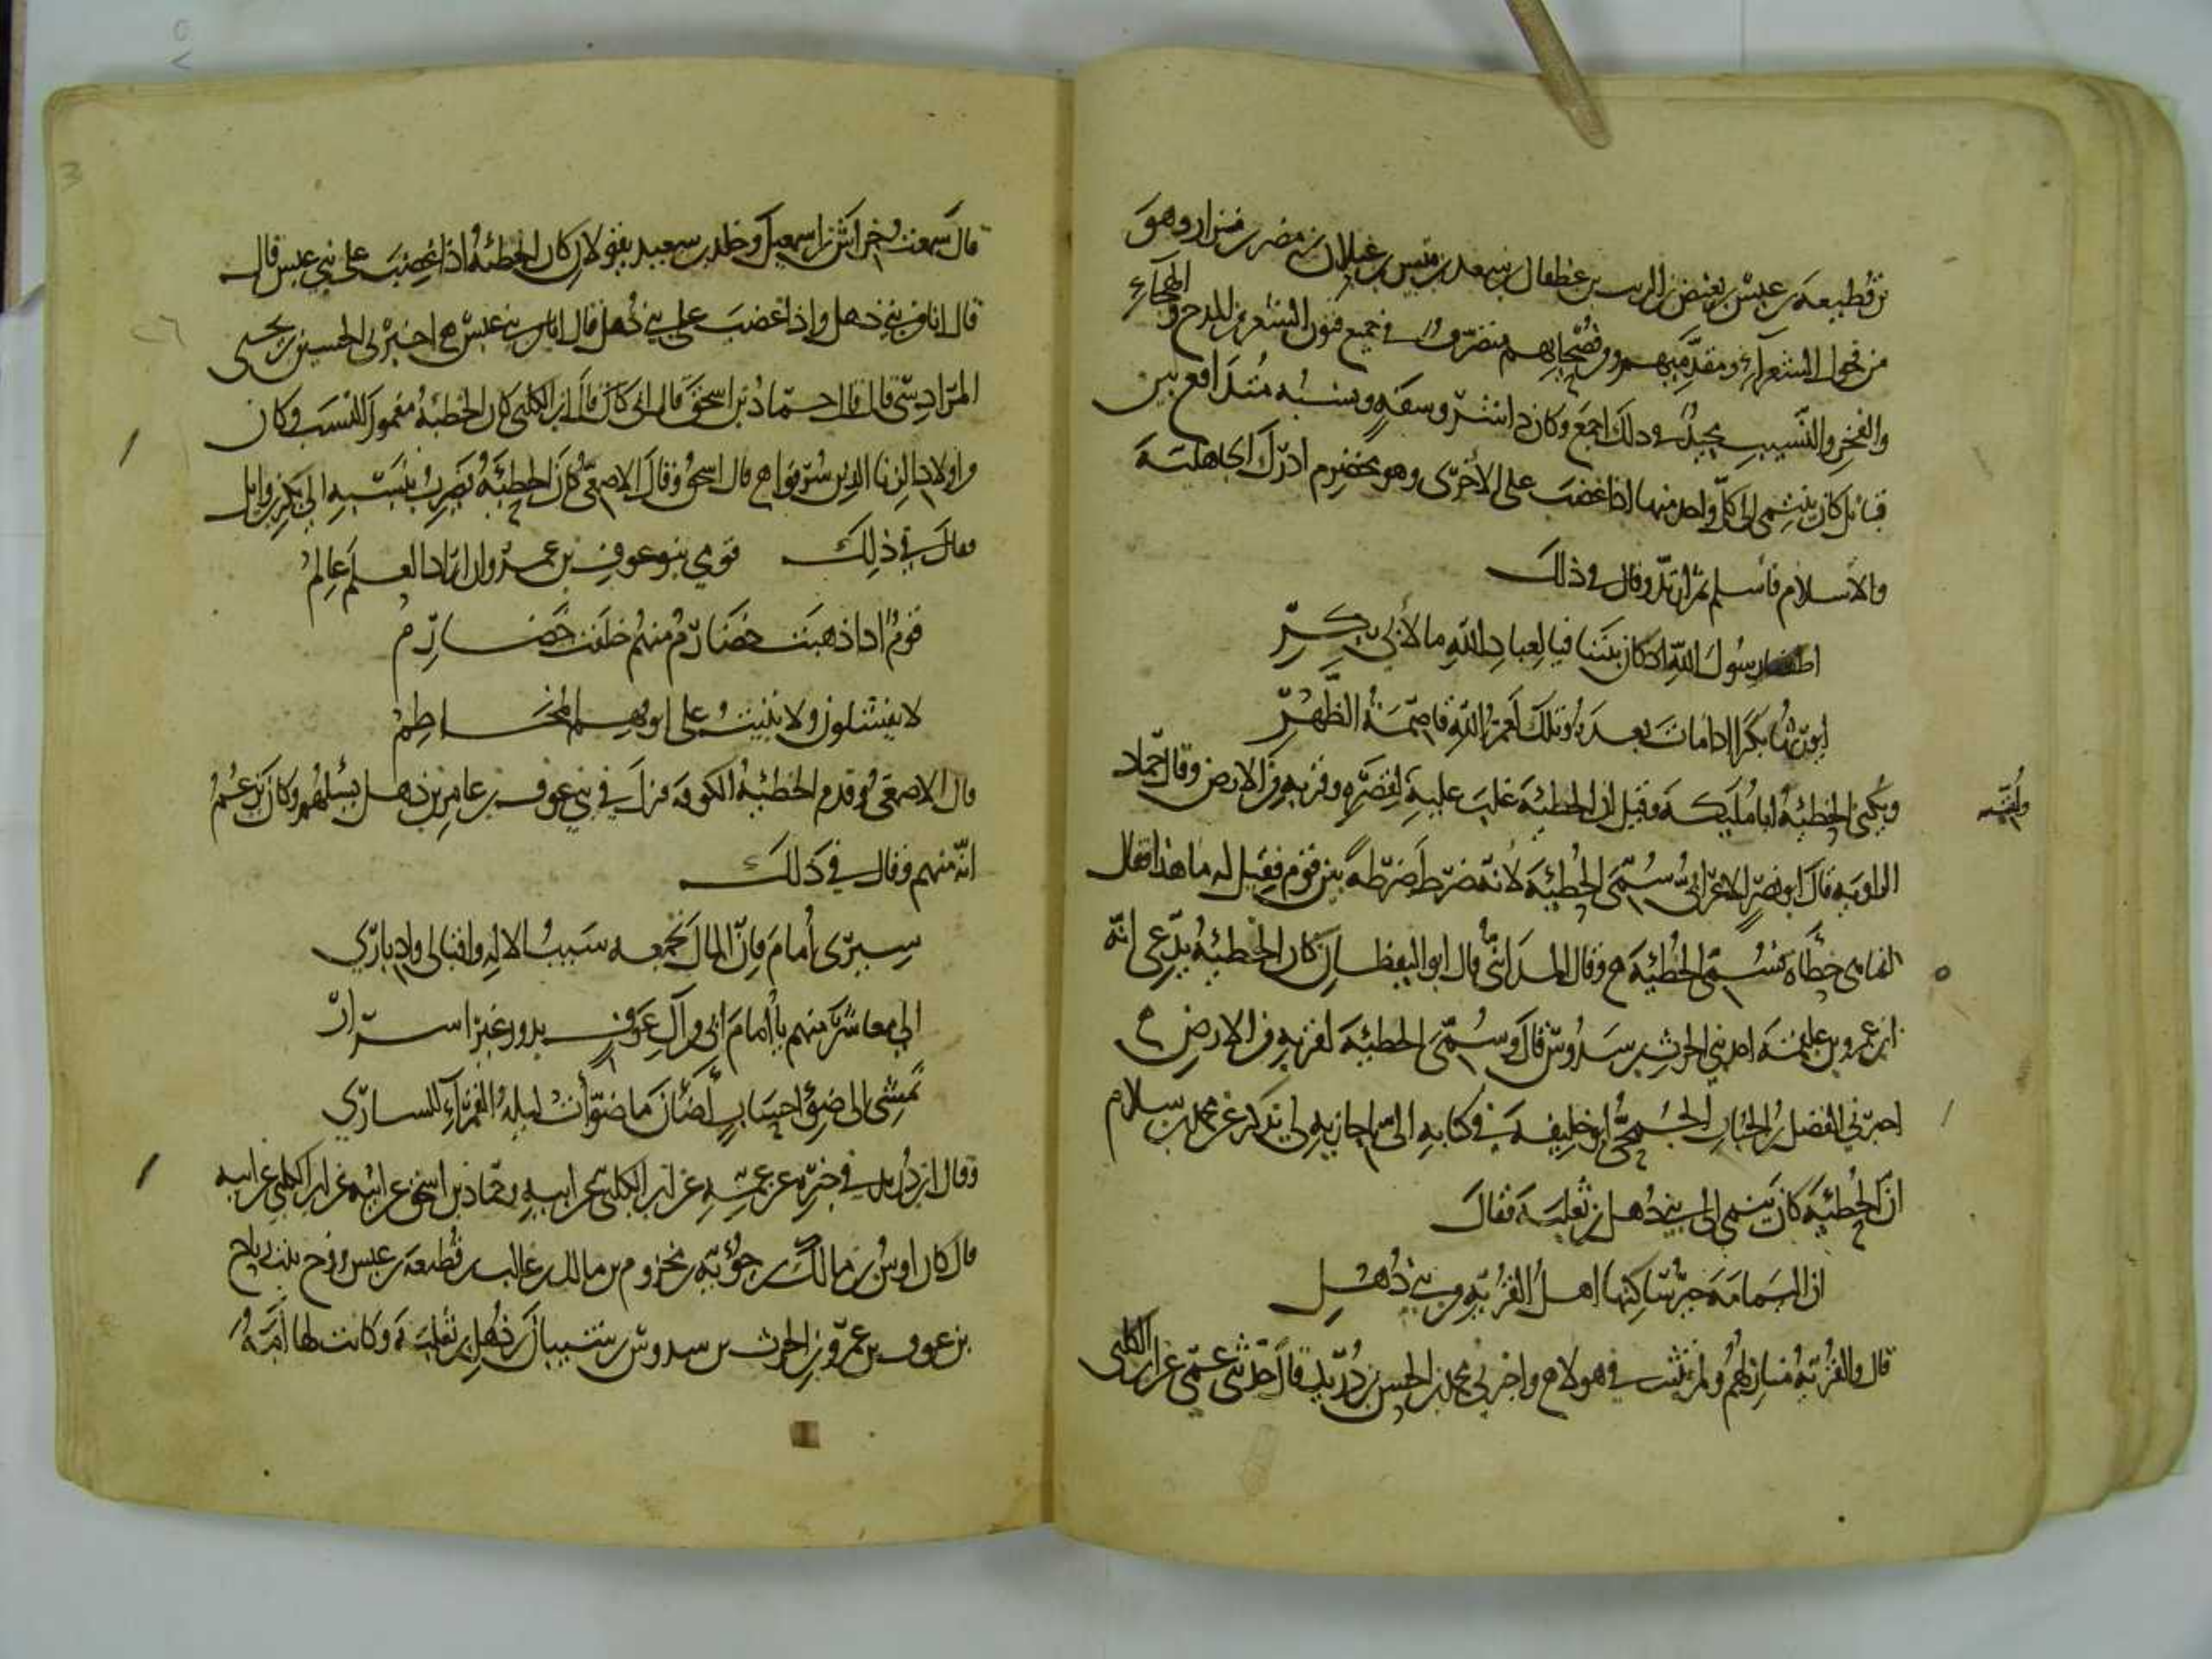 بن قطيعة بن عبس بن بغيض بن الريث بن غطفان بن سعد بن قيس بن عيلان بن مضر بن نزار وهو
من فحول الشعراء ومقدميهم وفصحائهم متصرف في جميع فنون الشعر من المدح والهجاء
والفخر والنسيب مجيد في ذلك اجمع وكان ذا شر وسفه ونسبه متدافع بين
قبائل كان ينتمي الى كل واحد منها اذا غضب على الأخرى وهو مخضرم ادرك الجاهلية
والاسلام فأسلم ثم ارتد وقال في ذلك
اطعنا رسول الله اذ كان بيننا فيا لعباد الله ما لأبي بكر
ايورثها بكرا اذا مات بعده وتلك لعمر الله قاصمة الظهر
ويكنى الحطيئة ابا مليكة وقيل ان الحطيئة غلب عليه لقصره وقربه من الارض وقال حماد
ولقبه
الراوية قال ابو نصر الاعرابي سمي الحطيئة لأنه ضرط ضرطة بين قوم فقيل له ما هذا فقال
انما هي حطأة فسمي الحطيئة وقال المدائني قال ابو اليقظان كان الحطيئة يدعي انه
ابن عمرو بن علقمة احد بني الحرث بن سدوس قال وسمي الحطيئة لقربه من الارض
اخبرني الفضل بن الحباب الجمحي ابو خليفة في كتابه الي باجازته لي يذكر عن محمد بن سلام
ان الحطيئة كان ينتمي الى بني ذهل بن ثعلبة فقال
ان اليمامة خير ساكنها اهل القرية من بني ذهل
قال والقرية منازلهم ولم يثبت في هولاء واخبرني محمد بن الحسن بن دريد قال حدثني عمي عن ابن الكلبي
قال سمعت خراش بن اسمعيل وخلد بن سعيد يقولان كان الحطيئة اذا غضب على بني عبس قال
قال انا من بني ذهل واذا غضب على بني ذهل قال انا من بني عبس اخبرني الحسين بن يحيى
المرادسي قال قال حماد بن اسحق قال ابي قال ابن الكلبي كان الحطيئة مغمور النسب وكان
من اولاد الزنا الذين شرفوا قال اسحق وقال الاصمعي كان الحطيئة يضرب بنسبه الى بكر بن وايل
فقال في ذلك قومي بنو عوف بن عمرو ان اراد العلم عالم
قوم اذا ذهبت خضارم منهم خلفت خضارم
لا يفشلون ولا يبيت على انوفهم المخاطم
قال الاصمعي وقدم الحطيئة الكوفة فنزل في بني عوف بن عامر بن ذهل يسئلهم وكان يزعم
انه منهم وقال في ذلك
سيري أمام فان المال يجمعه سيب الاله واقبالي وادباري
الى معاشر منهم يا أمام ابي من آل عوف بدور غير اسرار
نمشي الى ضوء احساب أضأن لنا ما ضوأت ليلة القمراء للساري
وقال ابن دريد في خبره عن عمه عن ابن الكلبي عن ابيه وحماد بن اسحق عن ابيه عن ابن الكلبي عن ابيه
قال كان اوس بن مالك بن جؤية بن مخزوم بن مالك بن غالب بن قطيعة بن عبس تزوج بنت رياح
بن عوف بن عمرو بن الحرث بن سدوس بن شيبان بن ذهل بن ثعلبة وكانت لها أمة